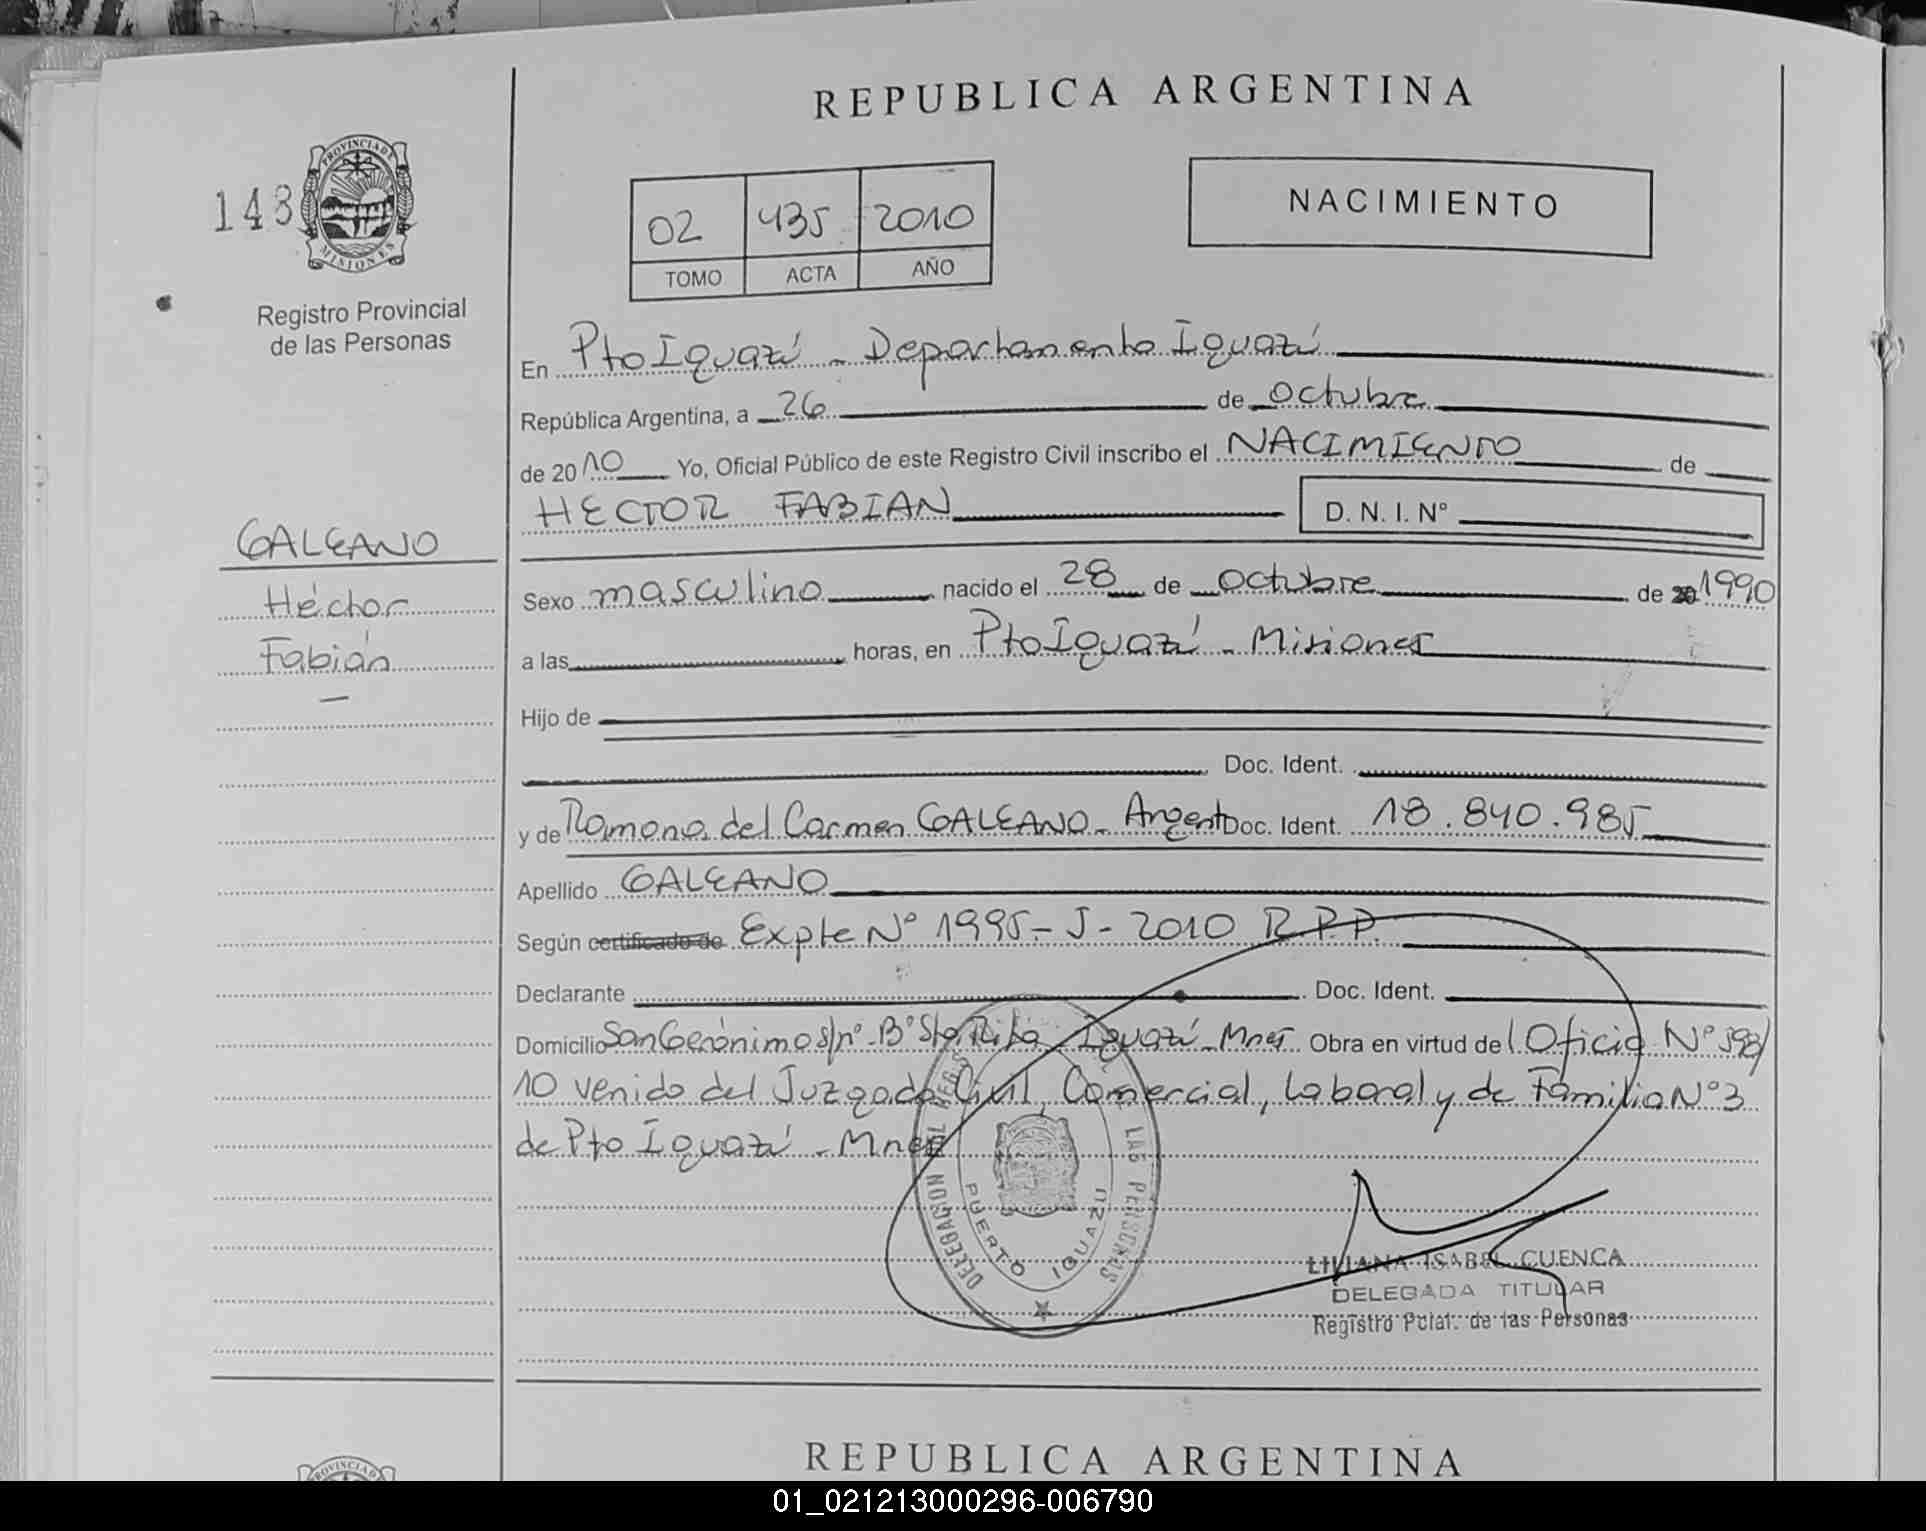 REPUBLICA ARGENTINA
143
PROVINCIA DE
MISIONES
Registro Provincial
de las Personas
02 435 2010
TOMO ACTA AÑO
NACIMIENTO
En Pto Iguazú - Departamento Iguazú
República Argentina, a 26 de octubre
de 2010 Yo, Oficial Público de este Registro Civil inscribo el NACIMIENTO de
HECTOR FABIAN D. N. I. N°
GALEANO
Héctor
Fabián
Sexo masculino nacido el 28 de octubre de 20 1990
a las horas, en Pto Iguazú - Misiones
Hijo de
Doc. Ident.
y de Ramona del Carmen GALEANO - Argent Doc. Ident. 18.840.985
Apellido GALEANO
Según certificado de Expte N° 1995-J-2010 R.P.P.
Declarante Doc. Ident.
Domicilio San Gerónimo s/n° B° Sta Rita Iguazú - Mnes Obra en virtud del Oficio N° 393/
10 venido del Juzgado Civil, Comercial, Laboral y de Familia N° 3
de Pto Iguazú - Mnes
DELEGACION DEL LAS PERSONAS
PUERTO IGUAZU
LILIANA ISABEL CUENCA
DELEGADA TITULAR
Registro Pcial. de las Personas
REPUBLICA ARGENTINA
PROVINCIA D
01_021213000296-006790